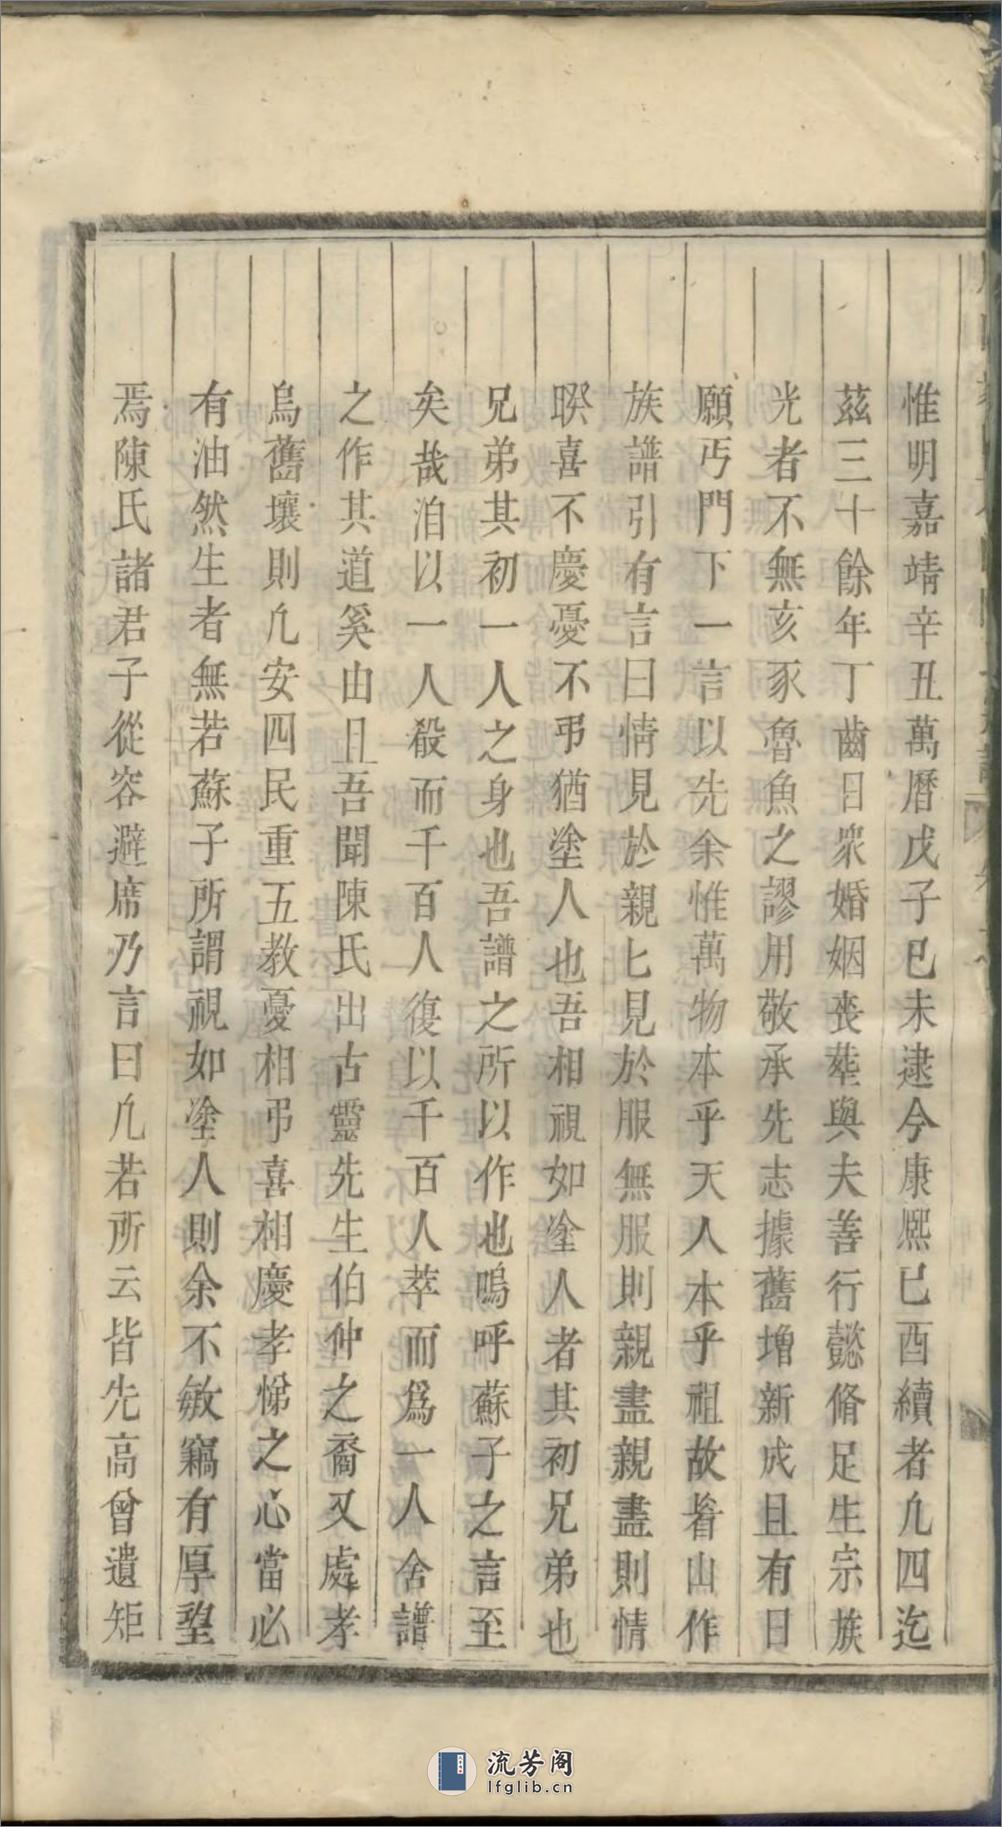 惟明嘉靖辛丑萬曆戊子已未逮今康熙已酉續者凢四迄
茲三十餘年丁齒日衆婚姻喪塟與夫善行懿脩足生宗族
光者不無亥豕魯魚之謬用敬承先志據舊增新成且有日
願丐門下一言以先余惟萬物本乎天人本乎祖故眷山作
族譜引有言曰情見於親匕見於服無服則親盡親盡則情
睽喜不慶憂不弔猶塗人也吾相視如塗人者其初兄弟也
兄弟其初一人之身也吾譜之所以作也嗚呼蘇子之言至
矣哉洎以一人殽而千百人復以千百人萃而爲一人舍譜
之作其道奚由且吾聞陳氏出古靈先生伯仲之裔又處孝
烏舊壤則凢安四民重五教憂相弔喜相慶孝悌之心當必
有油然生者無若蘇子所謂視如塗人則余不敏竊有厚望
焉陳氏諸君子從容避席乃言曰凢若所云皆先高曾遺矩
流芳阁
lfglib.cn